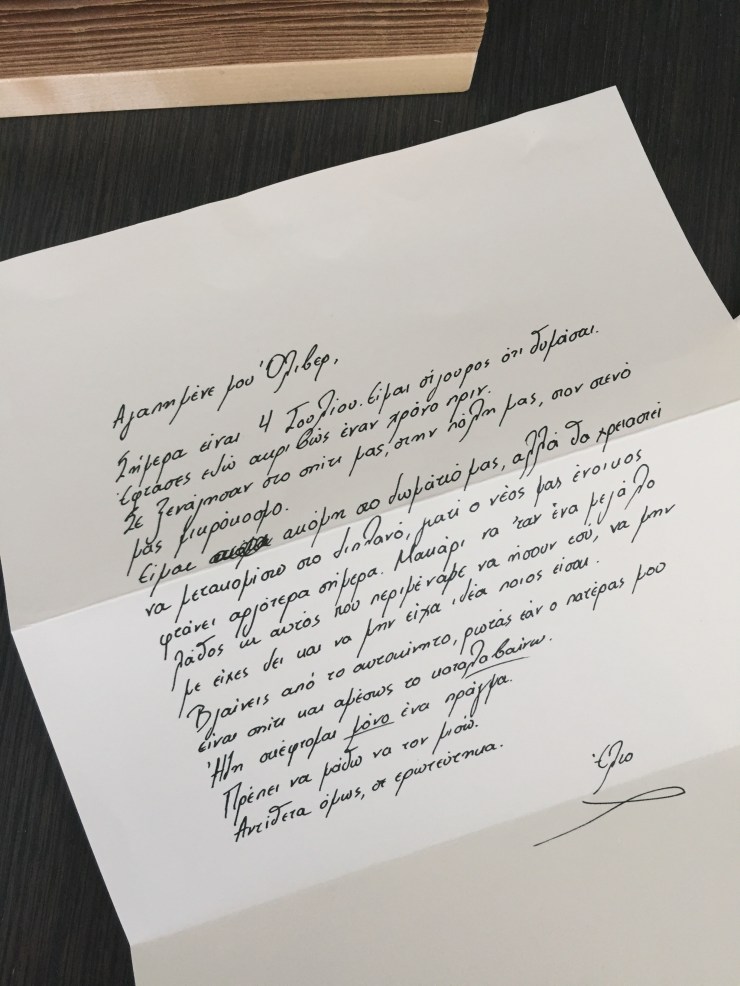 Αγαπημένε μου Όλιβερ,
Σήμερα είναι 4 Ιουλίου. Είμαι σίγουρος ότι θυμάσαι.
Έφτασες εδώ ακριβώς έναν χρόνο πριν.
Σε ξενάγησαν στο σπίτι μας, στην πόλη μας, στον στενό
μας μικρόκοσμο.
Είμαι ακόμη στο δωμάτιό μας, αλλά θα χρειαστεί
να μετακομίσω στο διπλανό, γιατί ο νέος μας ένοικος
φτάνει αργότερα σήμερα. Μακάρι να 'ταν ένα μεγάλο
λάθος κι αυτός που περιμέναμε να ήσουν εσύ, να μην
με είχες δει και να μην είχα ιδέα ποιος είσαι.
Βγαίνεις από το αυτοκίνητο, ρωτάς εάν ο πατέρας μου
είναι σπίτι και αμέσως το καταλαβαίνω.
Ήδη σκέφτομαι μόνο ένα πράγμα.
Πρέπει να μάθω να τον μισώ.
Αντίθετα όμως, σε ερωτεύτηκα.
Έλιο